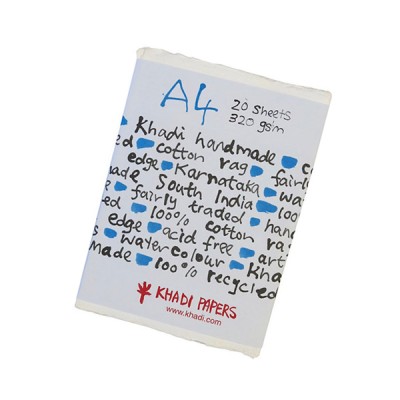 A4
20 sheets
320 gsm
Khadi handmade
ed cotton rag fairl
edge Karnataka wa
ade South India 100
fairly traded han
ed 100% cotton ra
edge acid free art
s water colour Kha
made 100% recycled
KHADI PAPERS
www.khadi.com